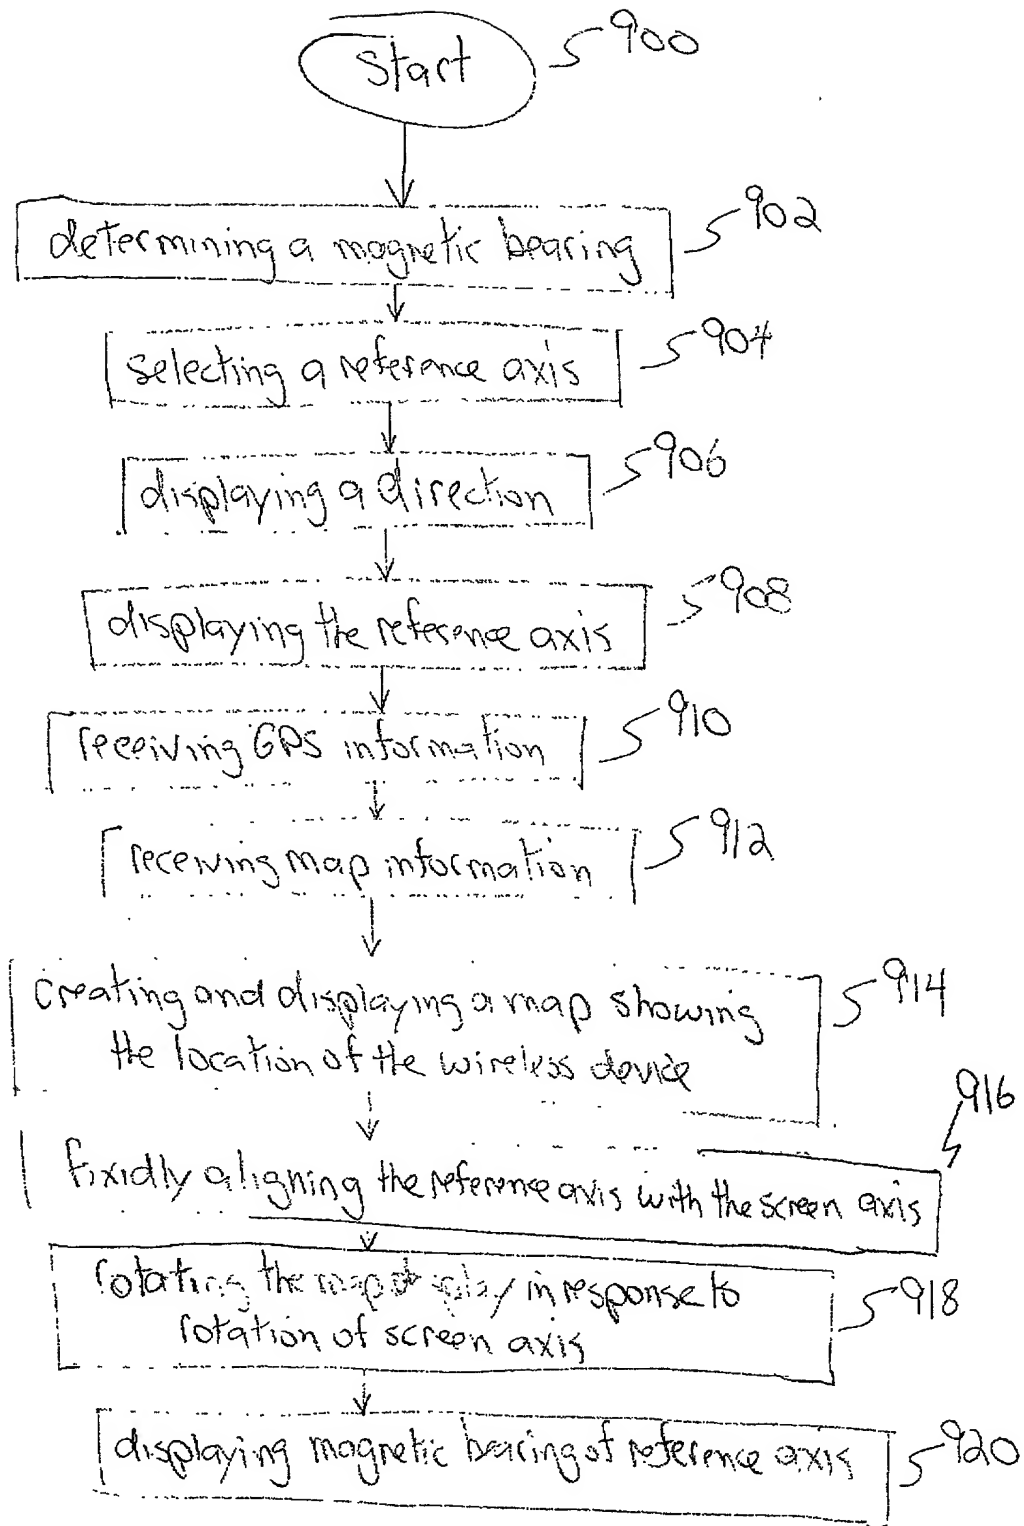 Start
900
determining a magnetic bearing
902
selecting a reference axis
904
displaying a direction
906
displaying the reference axis
908
receiving GPS information
910
receiving map information
912
creating and displaying a map showing
the location of the wireless device
914
fixidly aligning the reference axis with the screen axis
916
rotating the map display in response to
rotation of screen axis
918
displaying magnetic bearing of reference axis
920